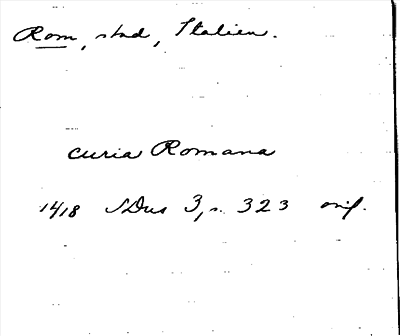 Rom, stad, Italien.
curia Romana
1418 SDns 3, s. 323 orig.